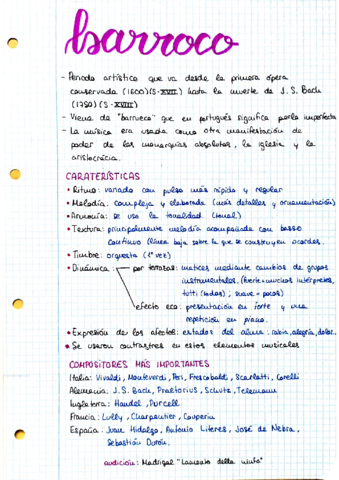 barroco
- Periodo artístico que va desde la primera ópera
conservada (1600)(S.XVII) hasta la muerte de J.S. Bach
(1750) (S.XVIII)
- Viene de "barrueca" que en portugués significa perla imperfecta
- La música era usada como otra manifestación de
poder de las monarquías absolutas, la iglesia y la
aristocracia.
CARATERÍSTICAS
• Ritmo: variado con pulso más rápido y regular
• Melodía: compleja y elaborada (más detalles y ornamentación)
• Armonía: se usa la tonalidad (tonal)
• Textura: principalmente melodía acompañada con bajo
continuo (línea baja sobre la que se construyen acordes.
• Timbre: orquesta (1ª vez)
• Dinámica: por terrazas: matices mediante cambios de grupos
instrumentales. (fuerte=muchos intérpretes,
tutti (todos), suave = pocos)
efecto eco: presentación en forte y una
repetición en piano.
• Expresión de los afectos: estados del alma: rabia, alegría, dolor.
• Se usaron contrastres en estos elementos musicales
COMPOSITORES MÁS IMPORTANTES
Italia: Vivaldi, Monteverdi, Peri, Frescobaldi, Scarlatti, Corelli
Alemania: J.S. Bach, Praetorius, Schutz, Telemann
Inglaterra: Haendel, Purcell
Francia: Lully, Charpentier, Couperin
España: Juan Hidalgo, Antonio Literes, José de Nebra,
Sebastián Durón.
audición: Madrigal "Lamento della ninfa"